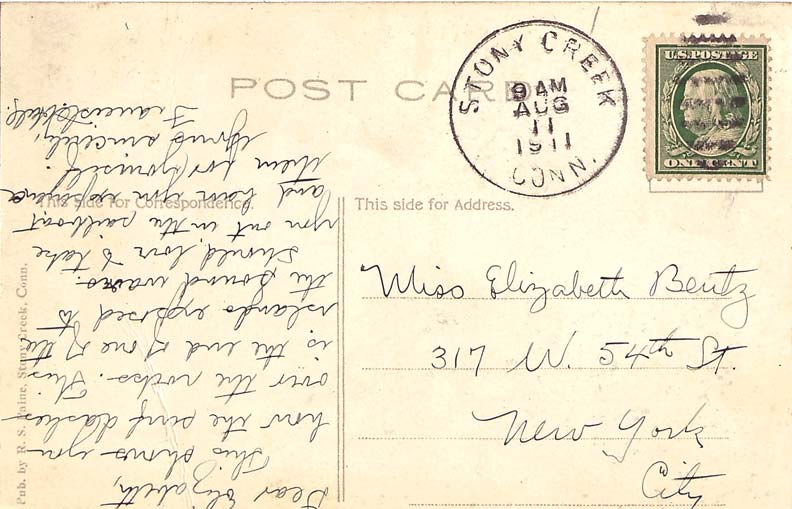 POST CARD
STONY CREEK
9 AM
AUG
11
1911
CONN.
U.S. POSTAGE
ONE CENT
This side for Correspondence.
This side for Address.
Miss Elizabeth Bentz
317 W. 54th St.
New York
City
Dear Elizabeth,
This shows you
how the surf dashes
over the rocks. This
is the end of one of the
islands exposed to
the Sound waves.
Should love to take
you out in the sailboat
and have you explore
them for yourself.
Yours sincerely,
Pub. by R. S. Paine, Stony Creek, Conn.